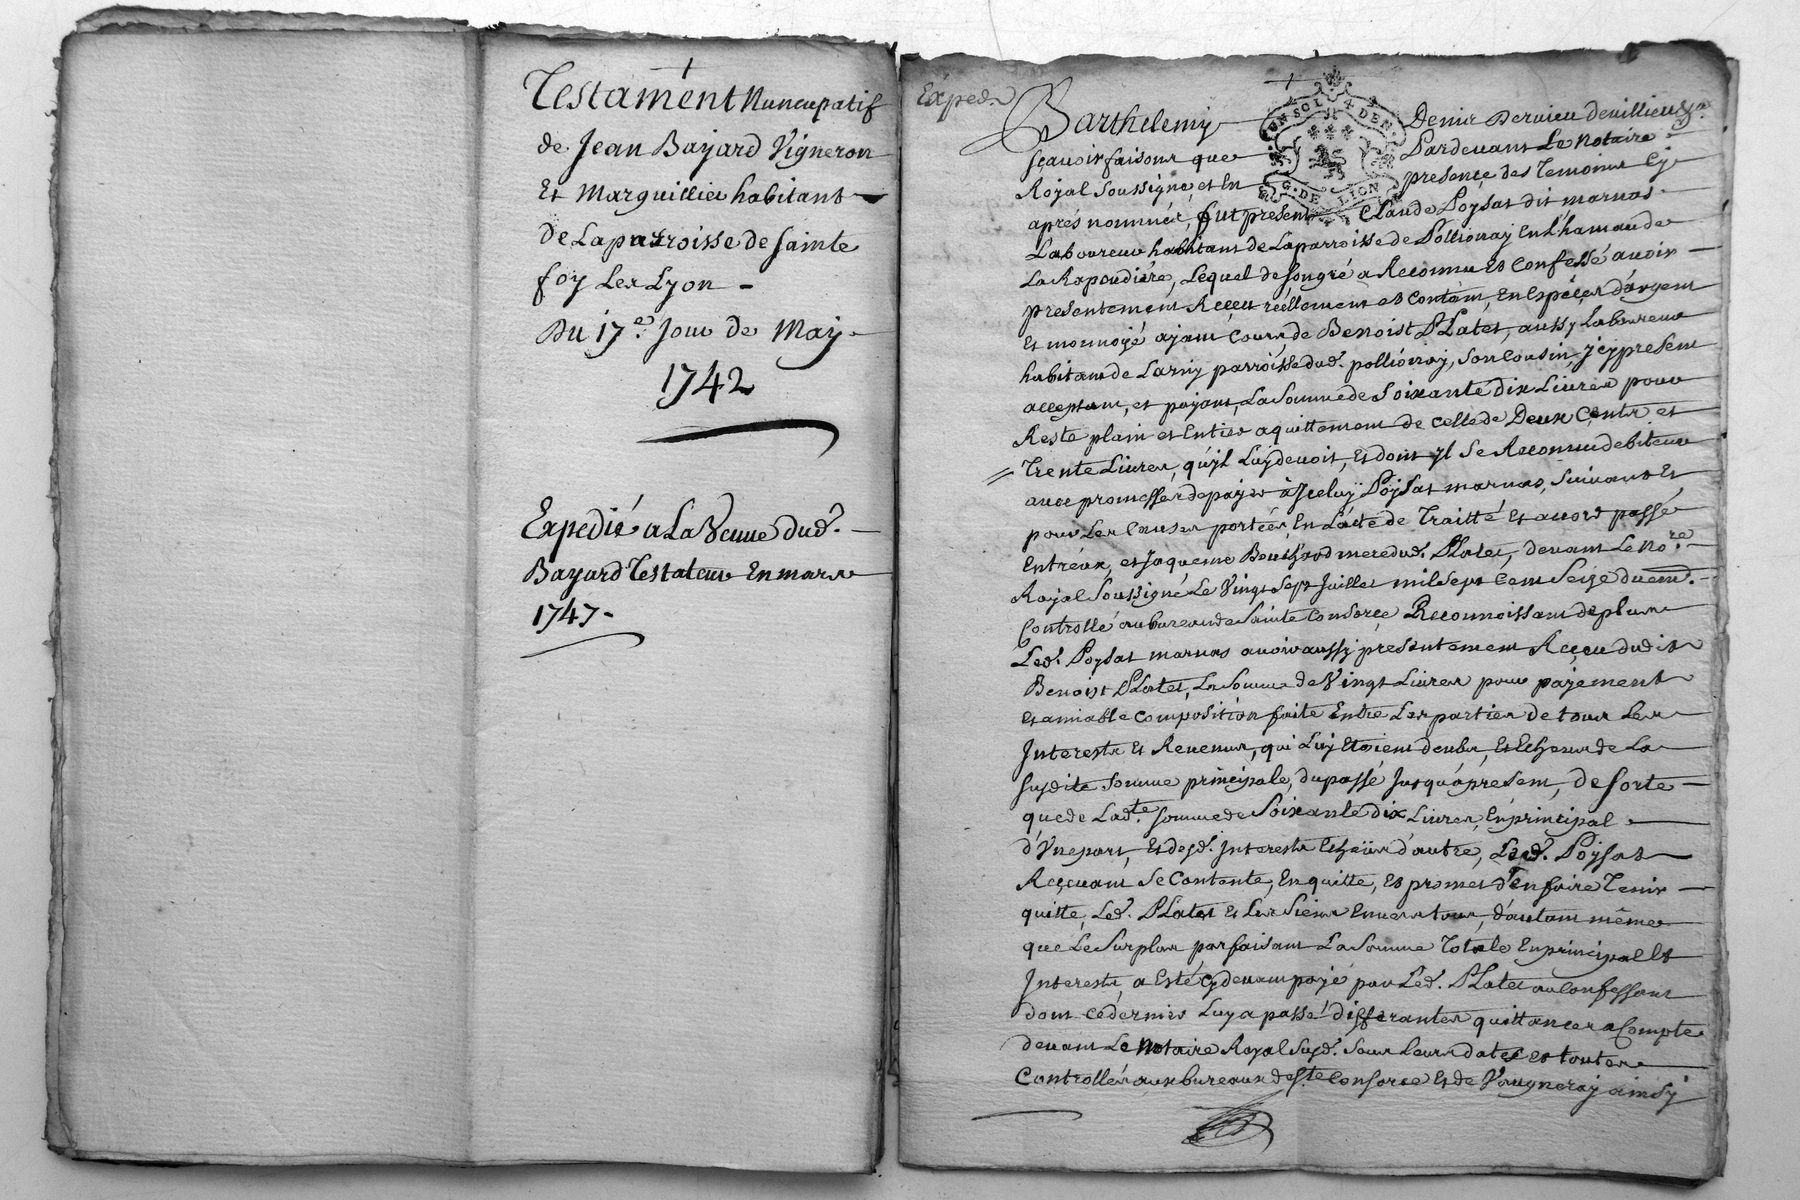 Testament Nuncupatif
de Jean Bayard Vigneron
Et Marguillier habitant
De Laparroisse de Sainte
foy Les Lyon -
Du 17e. Jour de May
1742
Expedié a La Veuve dud.
Bayard Testateur En mars
1747-
Exped.
Barthelemy Denir Dervieu devillieu
sçavoir faisons que Pardevant Le Notaire
Royal Soussigné et En presence des Temoins Cy
UN SOL 4 DEN.
G. DE LION
aprés nommés, fut present Claude Poysat dit marnas
Laboureur habitant de Laparroisse de Pollionay En L'hamau de
La Rapoudiére, Lequel de son gré a Reconnu Et Confessé avoir
presentement Reçeu réellement et contant, En Espéçes d'argent
Et monnoyé ayant Cours de Benoist PLates, aussy Laboureur
habitant de Larny parroisse dud. pollionay, son Cousin, jcy present
acceptant, et payant, La Somme de Soixante dix Livres pour
Reste plain et Entier aquittement de celle de Deux Cents et
Trente Livres, qu'jl Luy devoit, Et dont jl Se Reconnu debiteur
avec promesses de payer à Jceluy Poysat marnas, Suivant Et
pour Les Causes portées En L'acte de Traitté Et accord passé
Entréux, et Jaqueme Bouchard mere dud. PLates, devant Le No.re
Royal Soussigné Le Vingt Sept Juillet mil Sept Cent Seize duemt.
Controllé au bureau de Sainte Consorçe Reconnoissant de plus
Led. Poysat marnas avoir aussy presentement Reçeu dudit
Benoist PLates, La Somme de Vingt Livres pour payement
Et amiable composition faite Entre Les parties de tous Les
Interests Et Revenus, qui Luy Etoient deubs, Et Echeus de La
susdite Somme principale, du passé Jusqu'á present, de sorte
que de Lad.te somme de Soixante dix Livres, En principal
d'Vne part, Et desd. Interests Echeüs d'autre, Led. Poysat
Reçevant Se Contente, En quitte, Et promet d'En faire Tenir
quitte, Led. PLates Et Les Siens Envers tous, d'autant même
que Le Surplus parfaisant La Somme Totale En principal Et
Interests, a Esté Cy devant payé par Led. PLates au Confessant
dont cé dernier Luy a passé differantes quittances a Compte
devant Le Notaire Royal Susd. sous Leurs dates et toutes
Controllées aux bureaux de Ste Consorce Et de Vaugneray ainsy